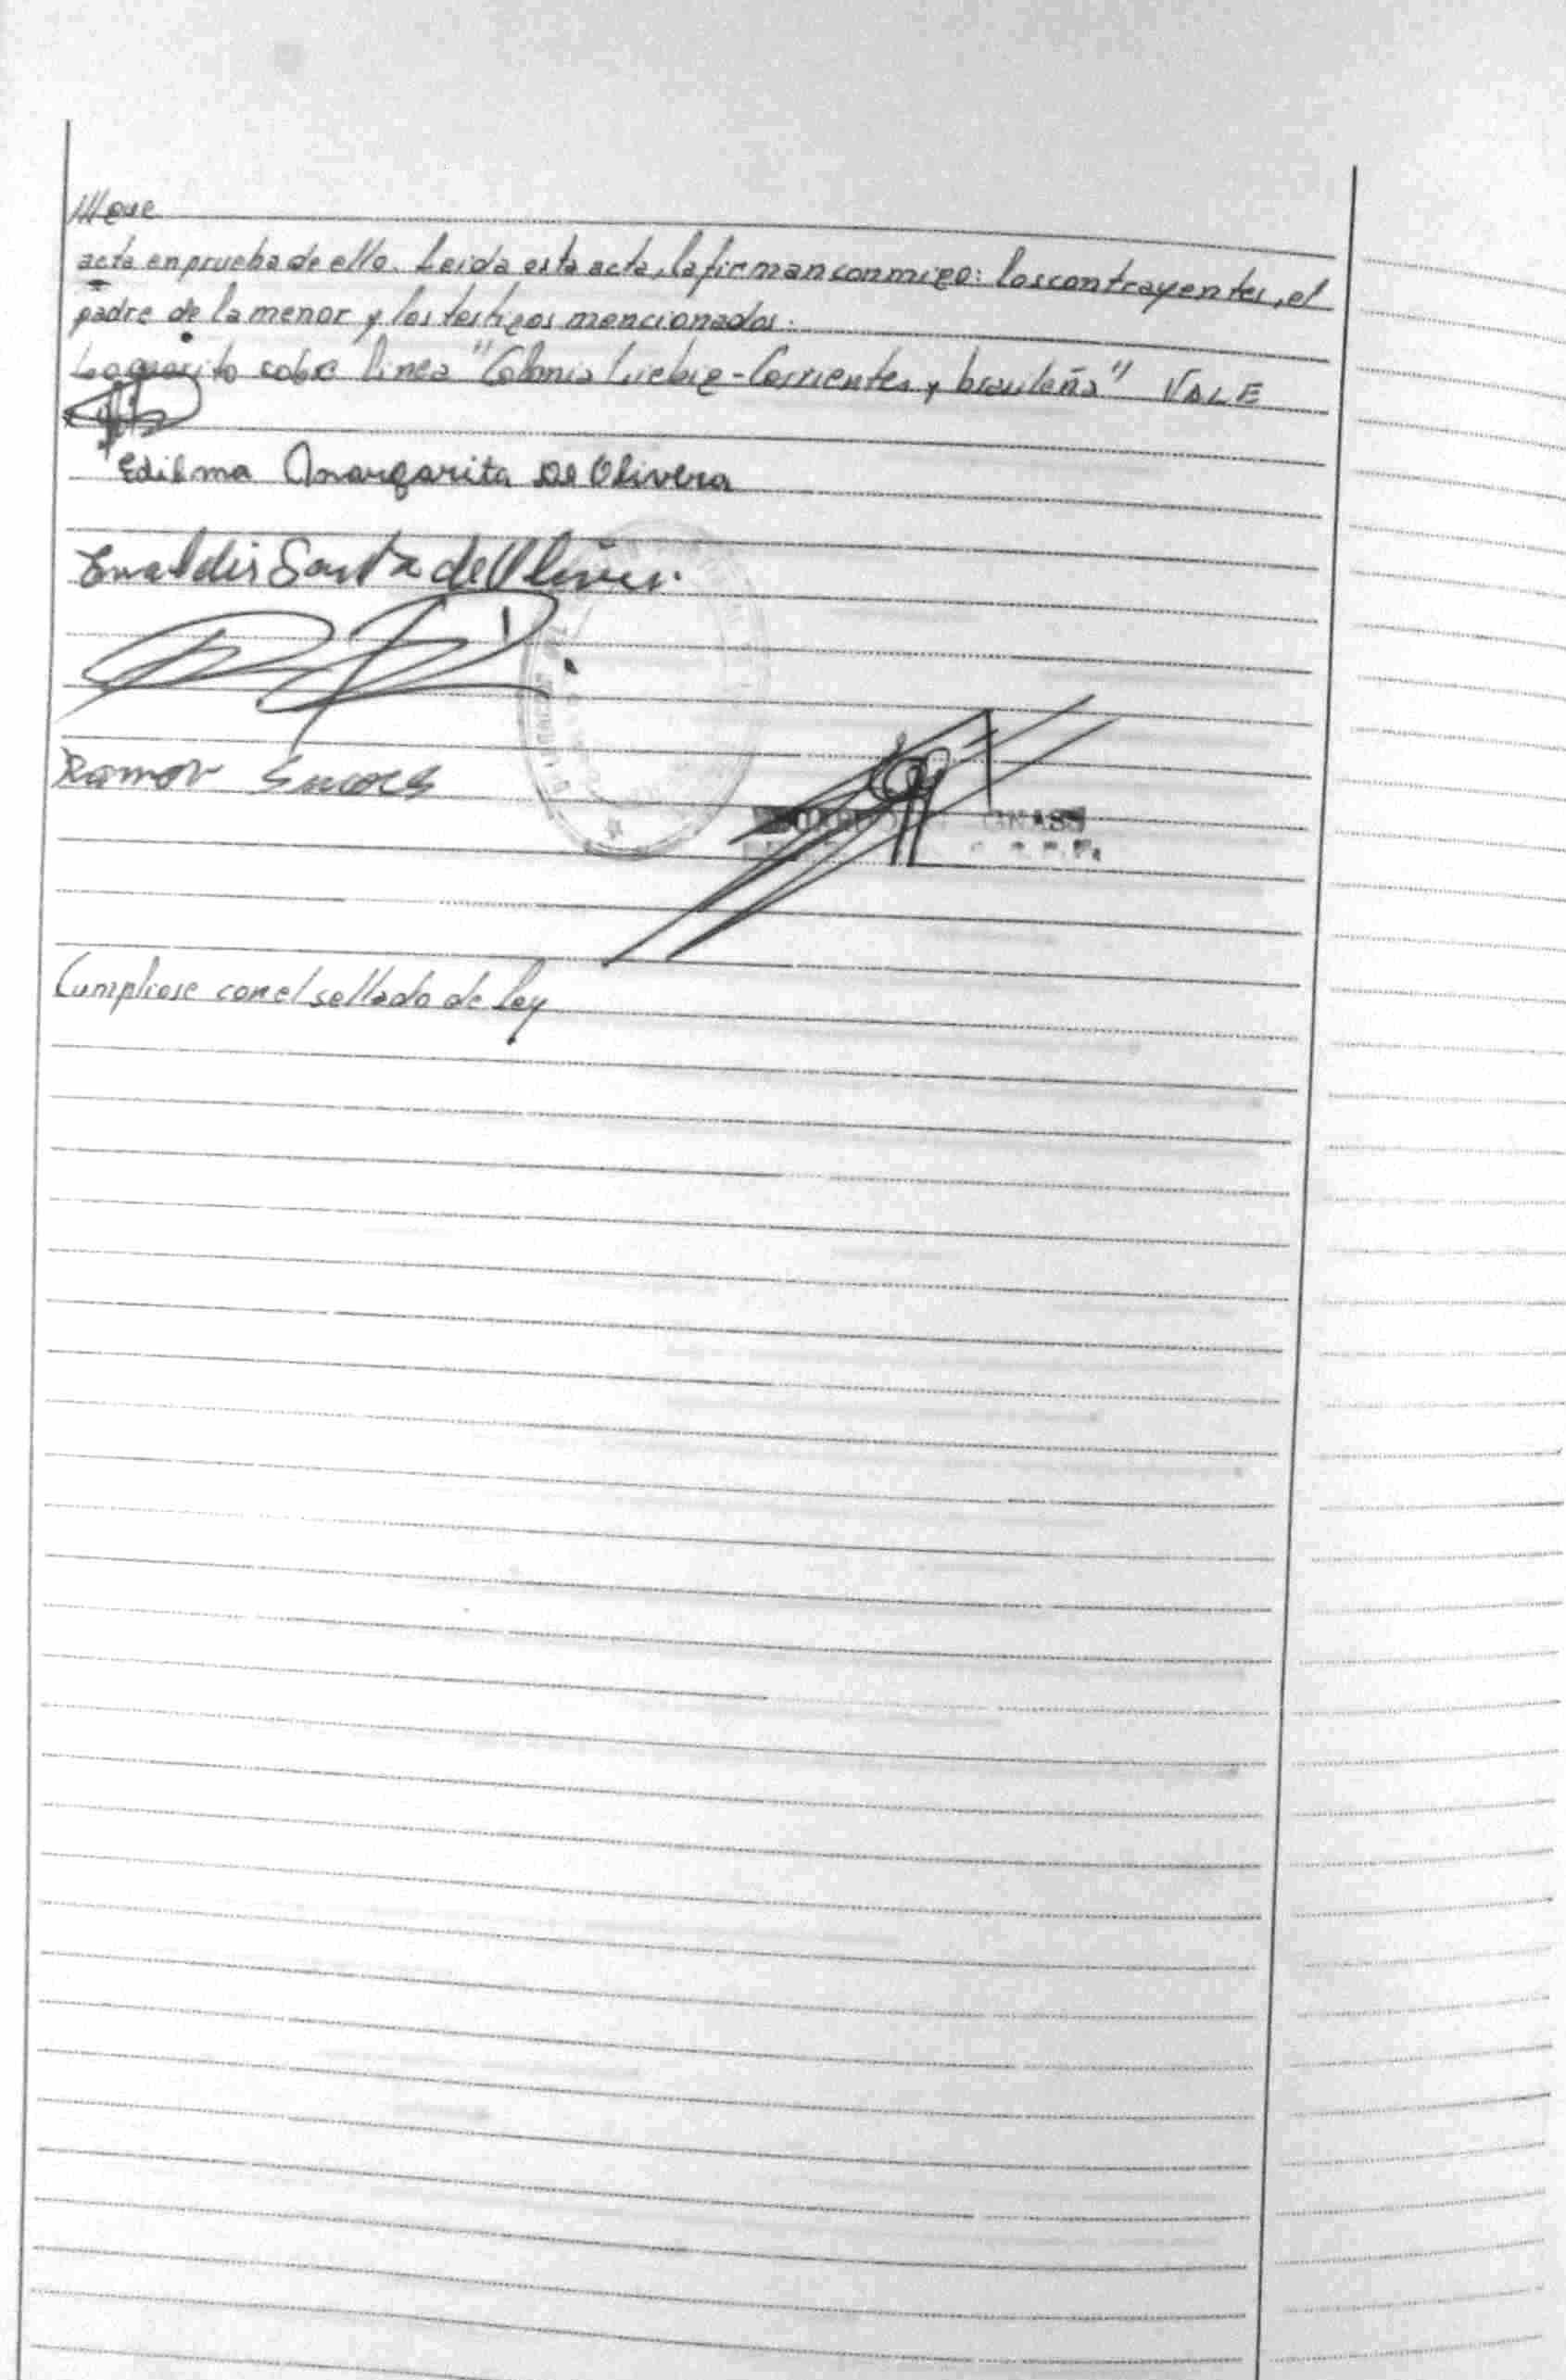 ///que
acta en prueba de ello. Leida esta acta, la firman conmigo: los contrayentes, el
padre de la menor y los testigos mencionados.
Lo escrito sobre linea "Colonia Liebig-Corrientes y brasileña" VALE
Edilma Margarita De Olivera
Santa de
Ramon
Cumpliose con el sellado de ley